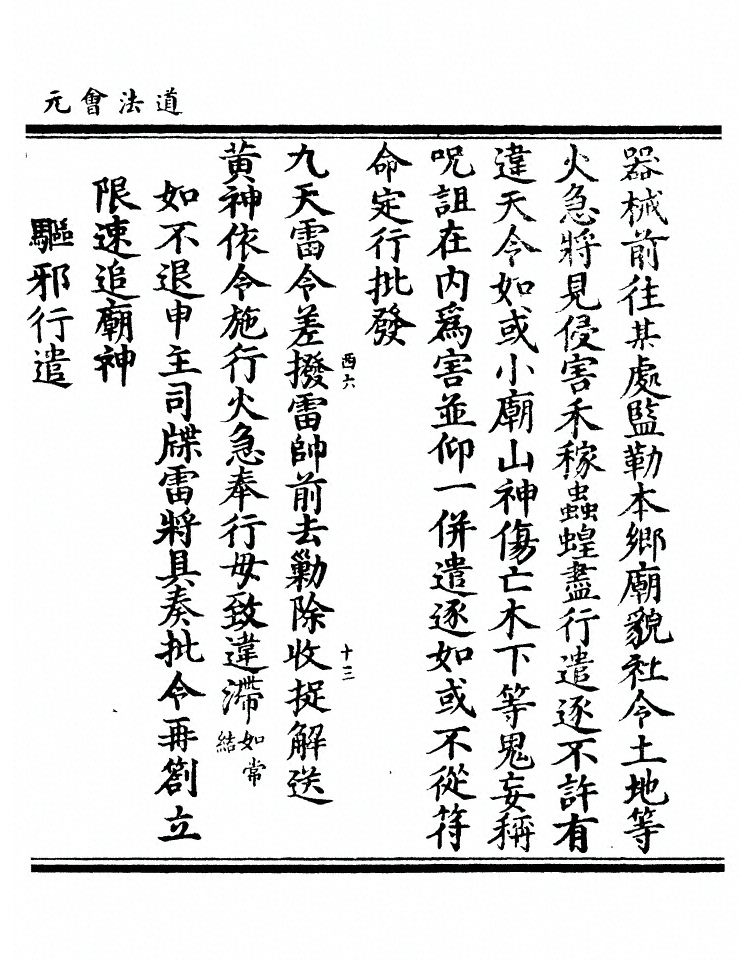 道法會元
器械前往某處監勒本鄉廟貌社令土地等
火急將見侵害禾稼蟲蝗盡行遣逐不許有
違天令如或小廟山神傷亡木下等鬼妄稱
呪詛在內爲害並仰一併遣逐如或不從符
命定行批發
西六
十三
九天雷令差撥雷帥前去勦除收捉解送
黃神依令施行火急奉行毋致違滯如常結
如不退申主司牒雷將具奏批令再劄立
限速追廟神
驅邪行遣